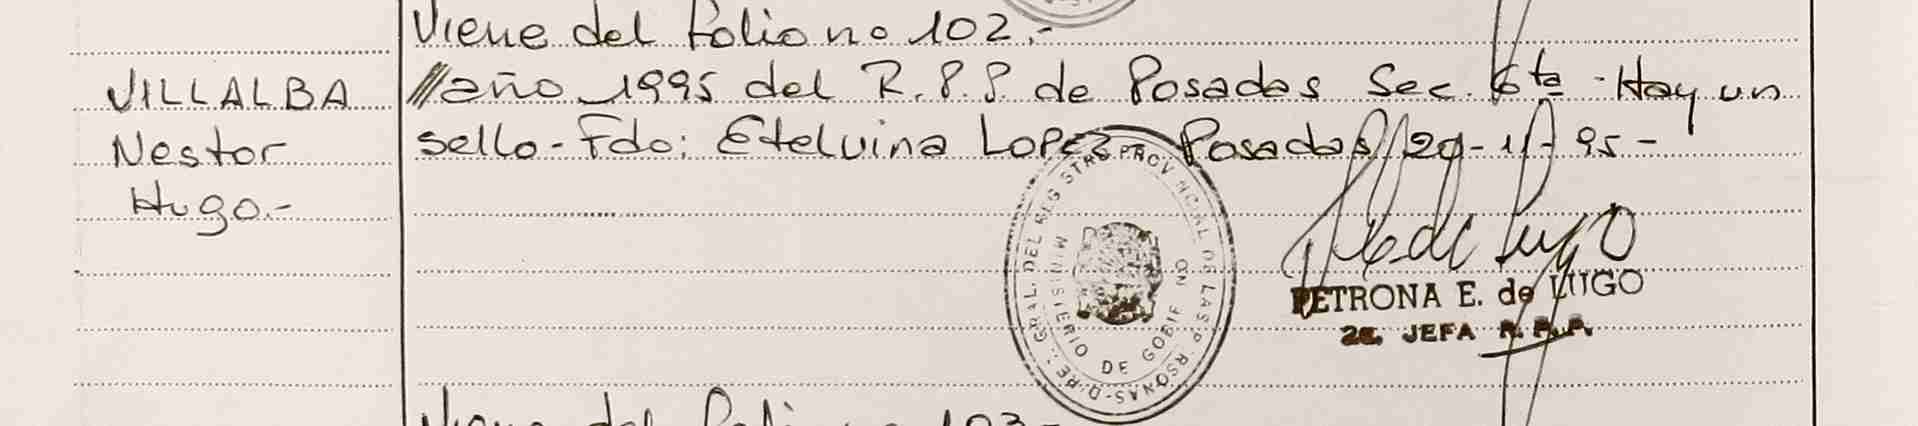 Viene del folio no 102.-
VILLALBA
Nestor
Hugo.-
//año 1995 del R.P.P. de Posadas Sec. 6ta - Hay un
sello - Fdo: Etelvina Lopez - Posadas, 29-11-95-
DIREC. GRAL. DEL REGISTRO PROVINCIAL DE LAS PERSONAS
MINISTERIO DE GOBIERNO
PETRONA E. de LUGO
2a. JEFA R. P. P.
Viene del Folio no 103.-